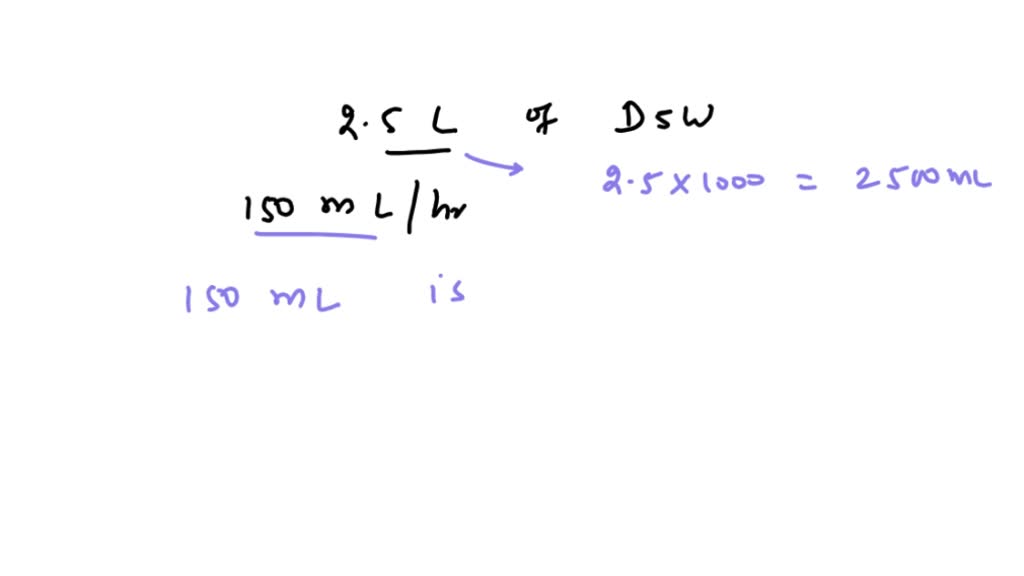 2.5 L of D5W
2.5 x 1000 = 2500 mL
150 mL/hr
150 mL is